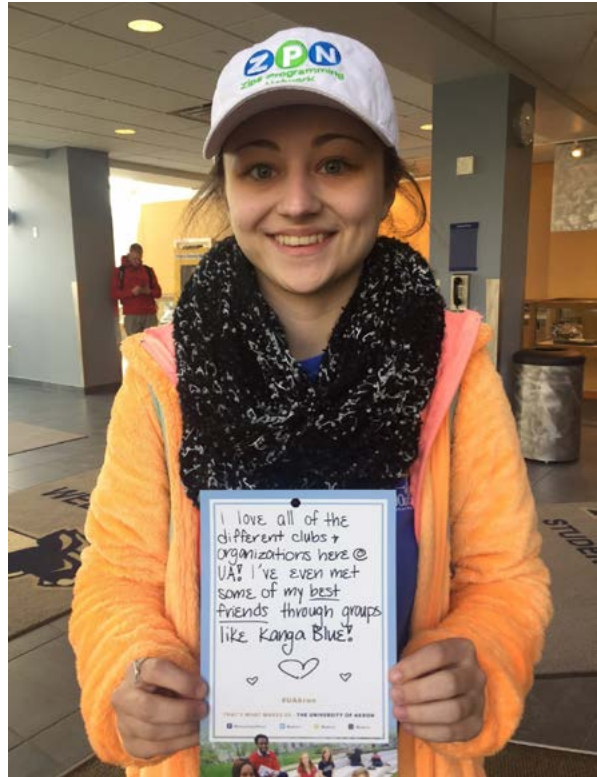 ZPN
Zips Programming
Network
WE
STUDEN
I love all of the
different clubs +
organizations here @
UA! I've even met
some of my best
friends through groups
like Kanga Blue!
#UAkron
THAT'S WHAT MAKES US · THE UNIVERSITY OF AKRON